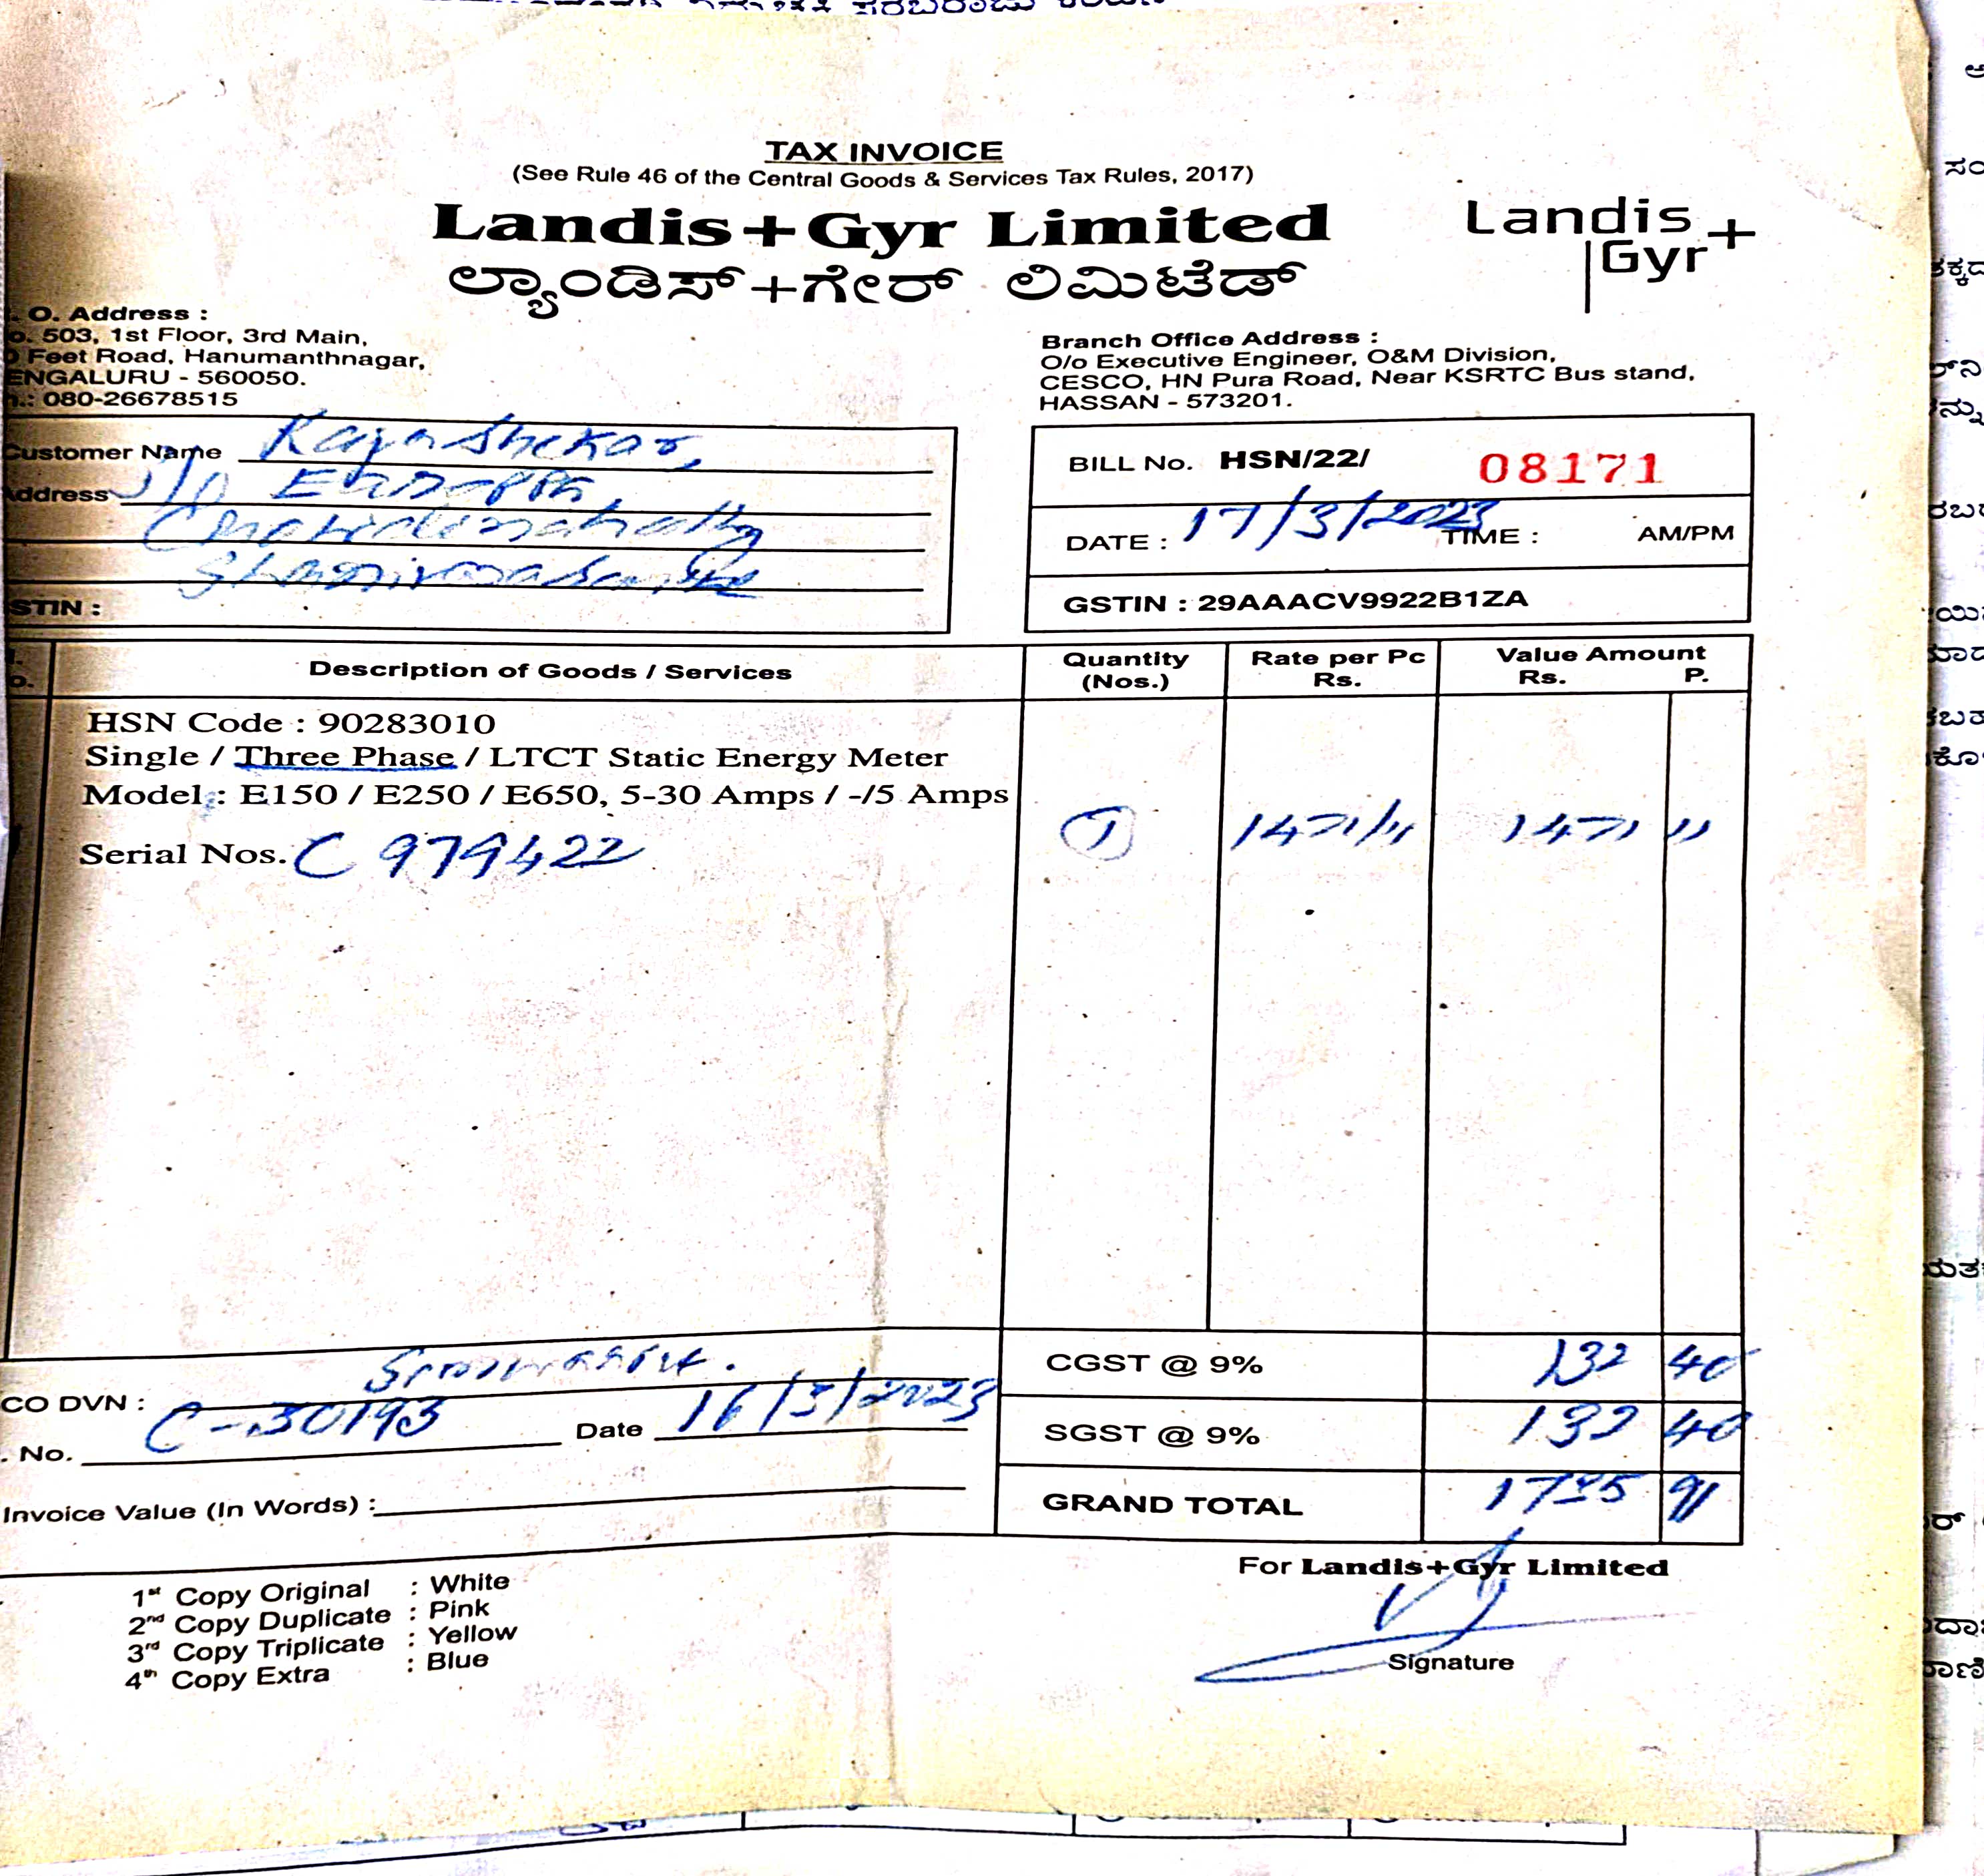 TAX INVOICE
(See Rule 46 of the Central Goods & Services Tax Rules, 2017)
Landis+Gyr Limited
ಲ್ಯಾಂಡಿಸ್+ಗೇರ್ ಲಿಮಿಟೆಡ್
Landis
Gyr+
O. Address :
503, 1st Floor, 3rd Main,
Feet Road, Hanumanthnagar,
ENGALURU - 560050.
080-26678515
Branch Office Address :
O/o Executive Engineer, O&M Division,
CESCO, HN Pura Road, Near KSRTC Bus stand,
HASSAN - 573201.
Customer Name Rajashekar,
Address
STIN :
BILL No. HSN/22/ 08171
DATE : 17/3/2023 TIME : AM/PM
GSTIN : 29AAACV9922B1ZA
Description of Goods / Services
Quantity (Nos.)
Rate per Pc Rs.
Value Amount Rs. P.
HSN Code : 90283010
Single / Three Phase / LTCT Static Energy Meter
Model : E150 / E250 / E650, 5-30 Amps / -/5 Amps
Serial Nos. C 979422
1 1471/11 1471 11
CO DVN :
No. C-30193 Date 16/3/2023
Invoice Value (In Words) :
CGST @ 9% 132 40
SGST @ 9% 132 40
GRAND TOTAL 1735 91
1st Copy Original : White
2nd Copy Duplicate : Pink
3rd Copy Triplicate : Yellow
4th Copy Extra : Blue
For Landis+Gyr Limited
Signature